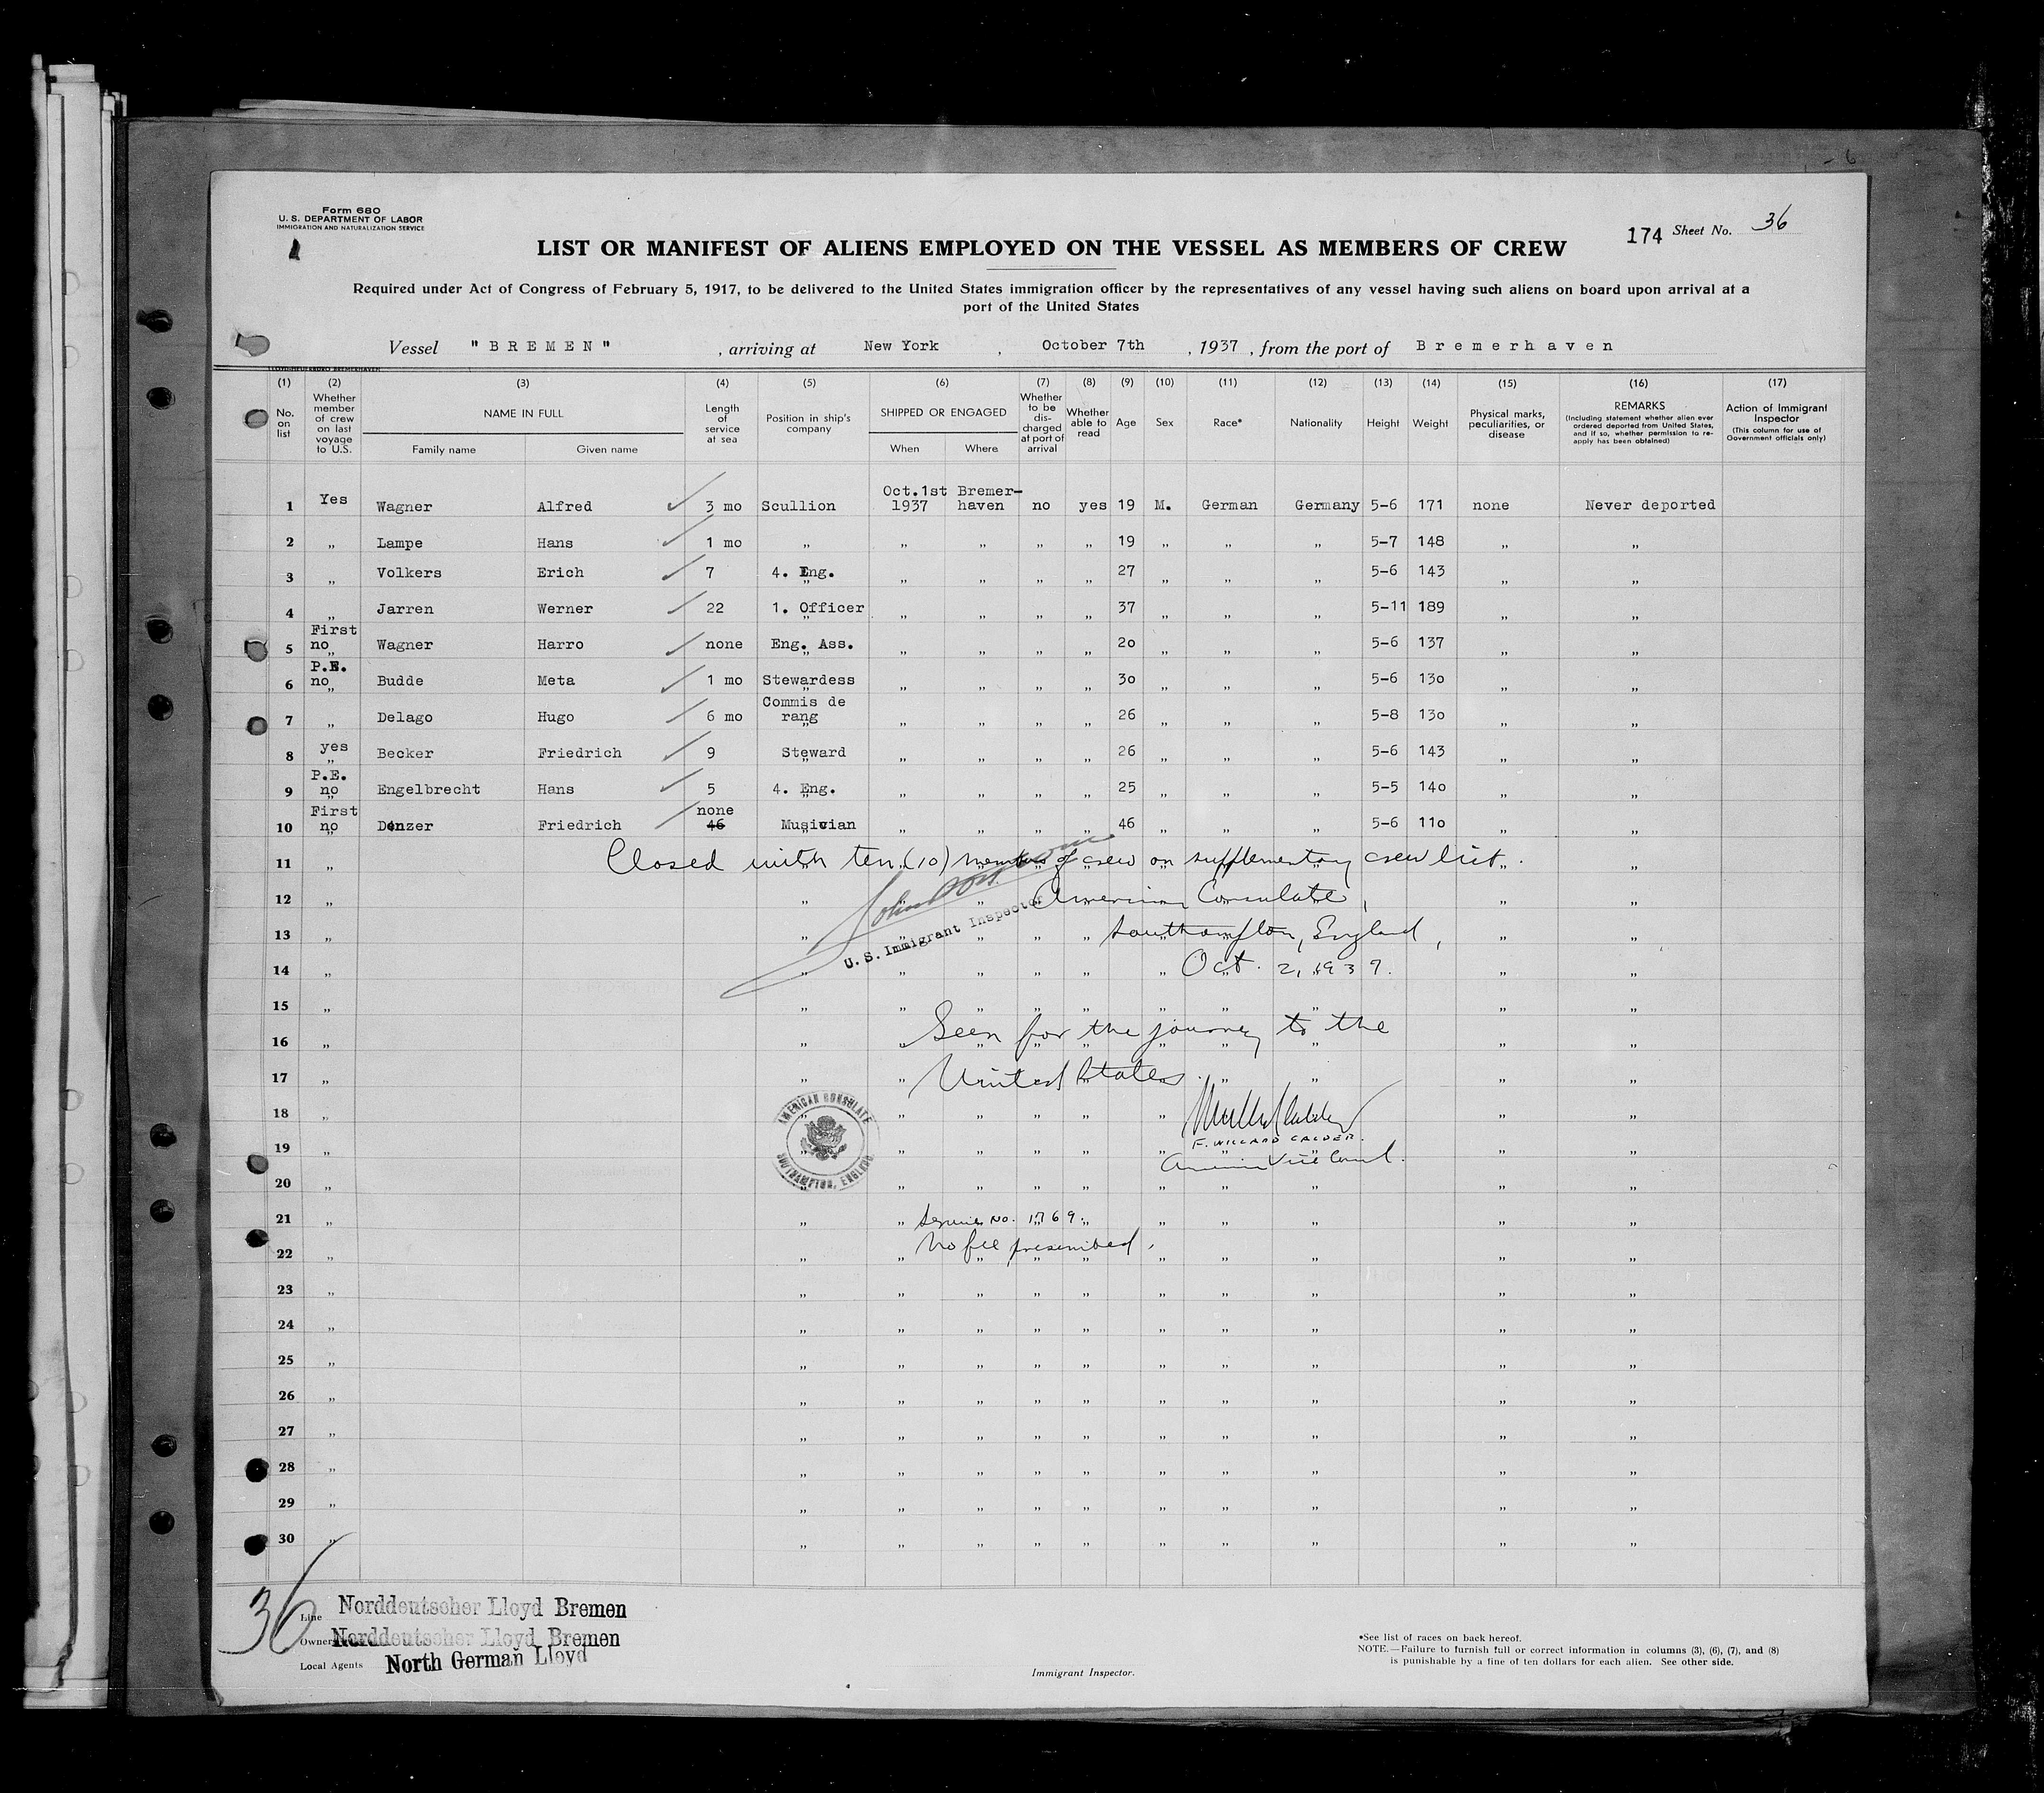 Form 680
U. S. DEPARTMENT OF LABOR
IMMIGRATION AND NATURALIZATION SERVICE
174 Sheet No. 36
LIST OR MANIFEST OF ALIENS EMPLOYED ON THE VESSEL AS MEMBERS OF CREW
Required under Act of Congress of February 5, 1917, to be delivered to the United States immigration officer by the representatives of any vessel having such aliens on board upon arrival at a
port of the United States
Vessel "BREMEN" , arriving at New York , October 7th , 1937 , from the port of Bremerhaven
(1) No. on list
(2) Whether member of crew on last voyage to U.S.
(3) NAME IN FULL Family name Given name
(4) Length of service at sea
(5) Position in ship's company
(6) SHIPPED OR ENGAGED When Where
(7) Whether to be discharged at port of arrival
(8) Whether able to read
(9) Age
(10) Sex
(11) Race*
(12) Nationality
(13) Height
(14) Weight
(15) Physical marks, peculiarities, or disease
(16) REMARKS (Including statement whether alien ever ordered deported from United States, and if so, whether permission to re-apply has been obtained)
(17) Action of Immigrant Inspector (This column for use of Government officials only)
1 Yes Wagner Alfred 3 mo Scullion Oct.1st 1937 Bremer-haven no yes 19 M. German Germany 5-6 171 none Never deported
2 „ Lampe Hans 1 mo „ „ „ „ „ 19 „ „ „ 5-7 148 „ „
3 „ Volkers Erich 7 4. Eng. „ „ „ „ 27 „ „ „ 5-6 143 „ „
4 „ Jarren Werner 22 1. Officer „ „ „ „ 37 „ „ „ 5-11 189 „ „
5 First no „ Wagner Harro none Eng. Ass. „ „ „ „ 20 „ „ „ 5-6 137 „ „
6 P.E. no „ Budde Meta 1 mo Stewardess „ „ „ „ 30 „ „ „ 5-6 130 „ „
7 „ Delago Hugo 6 mo Commis de rang „ „ „ „ 26 „ „ „ 5-8 130 „ „
8 yes „ Becker Friedrich 9 Steward „ „ „ „ 26 „ „ „ 5-6 143 „ „
9 P.E. no „ Engelbrecht Hans 5 4. Eng. „ „ „ „ 25 „ „ „ 5-5 140 „ „
10 First no „ Denzer Friedrich none 46 Musician „ „ „ „ 46 „ „ „ 5-6 110 „ „
11 Closed with ten (10) members of crew on supplementary crew list.
12 American Consulate,
13 Southampton, England,
U. S. Immigrant Inspector
14 Oct. 2, 1937.
15
16 Seen for the journey to the
17 United States.
18
AMERICAN CONSULATE
SOUTHAMPTON, ENGLAND
F. WILLARD CALDER.
19 American Vice Consul.
20
21 Service No. 1769.
22 No fee prescribed.
23
24
25
26
27
28
29
30
36
Line Norddeutscher Lloyd Bremen
Owner Norddeutscher Lloyd Bremen
Local Agents North German Lloyd
Immigrant Inspector.
*See list of races on back hereof.
NOTE.—Failure to furnish full or correct information in columns (3), (6), (7), and (8)
is punishable by a fine of ten dollars for each alien. See other side.